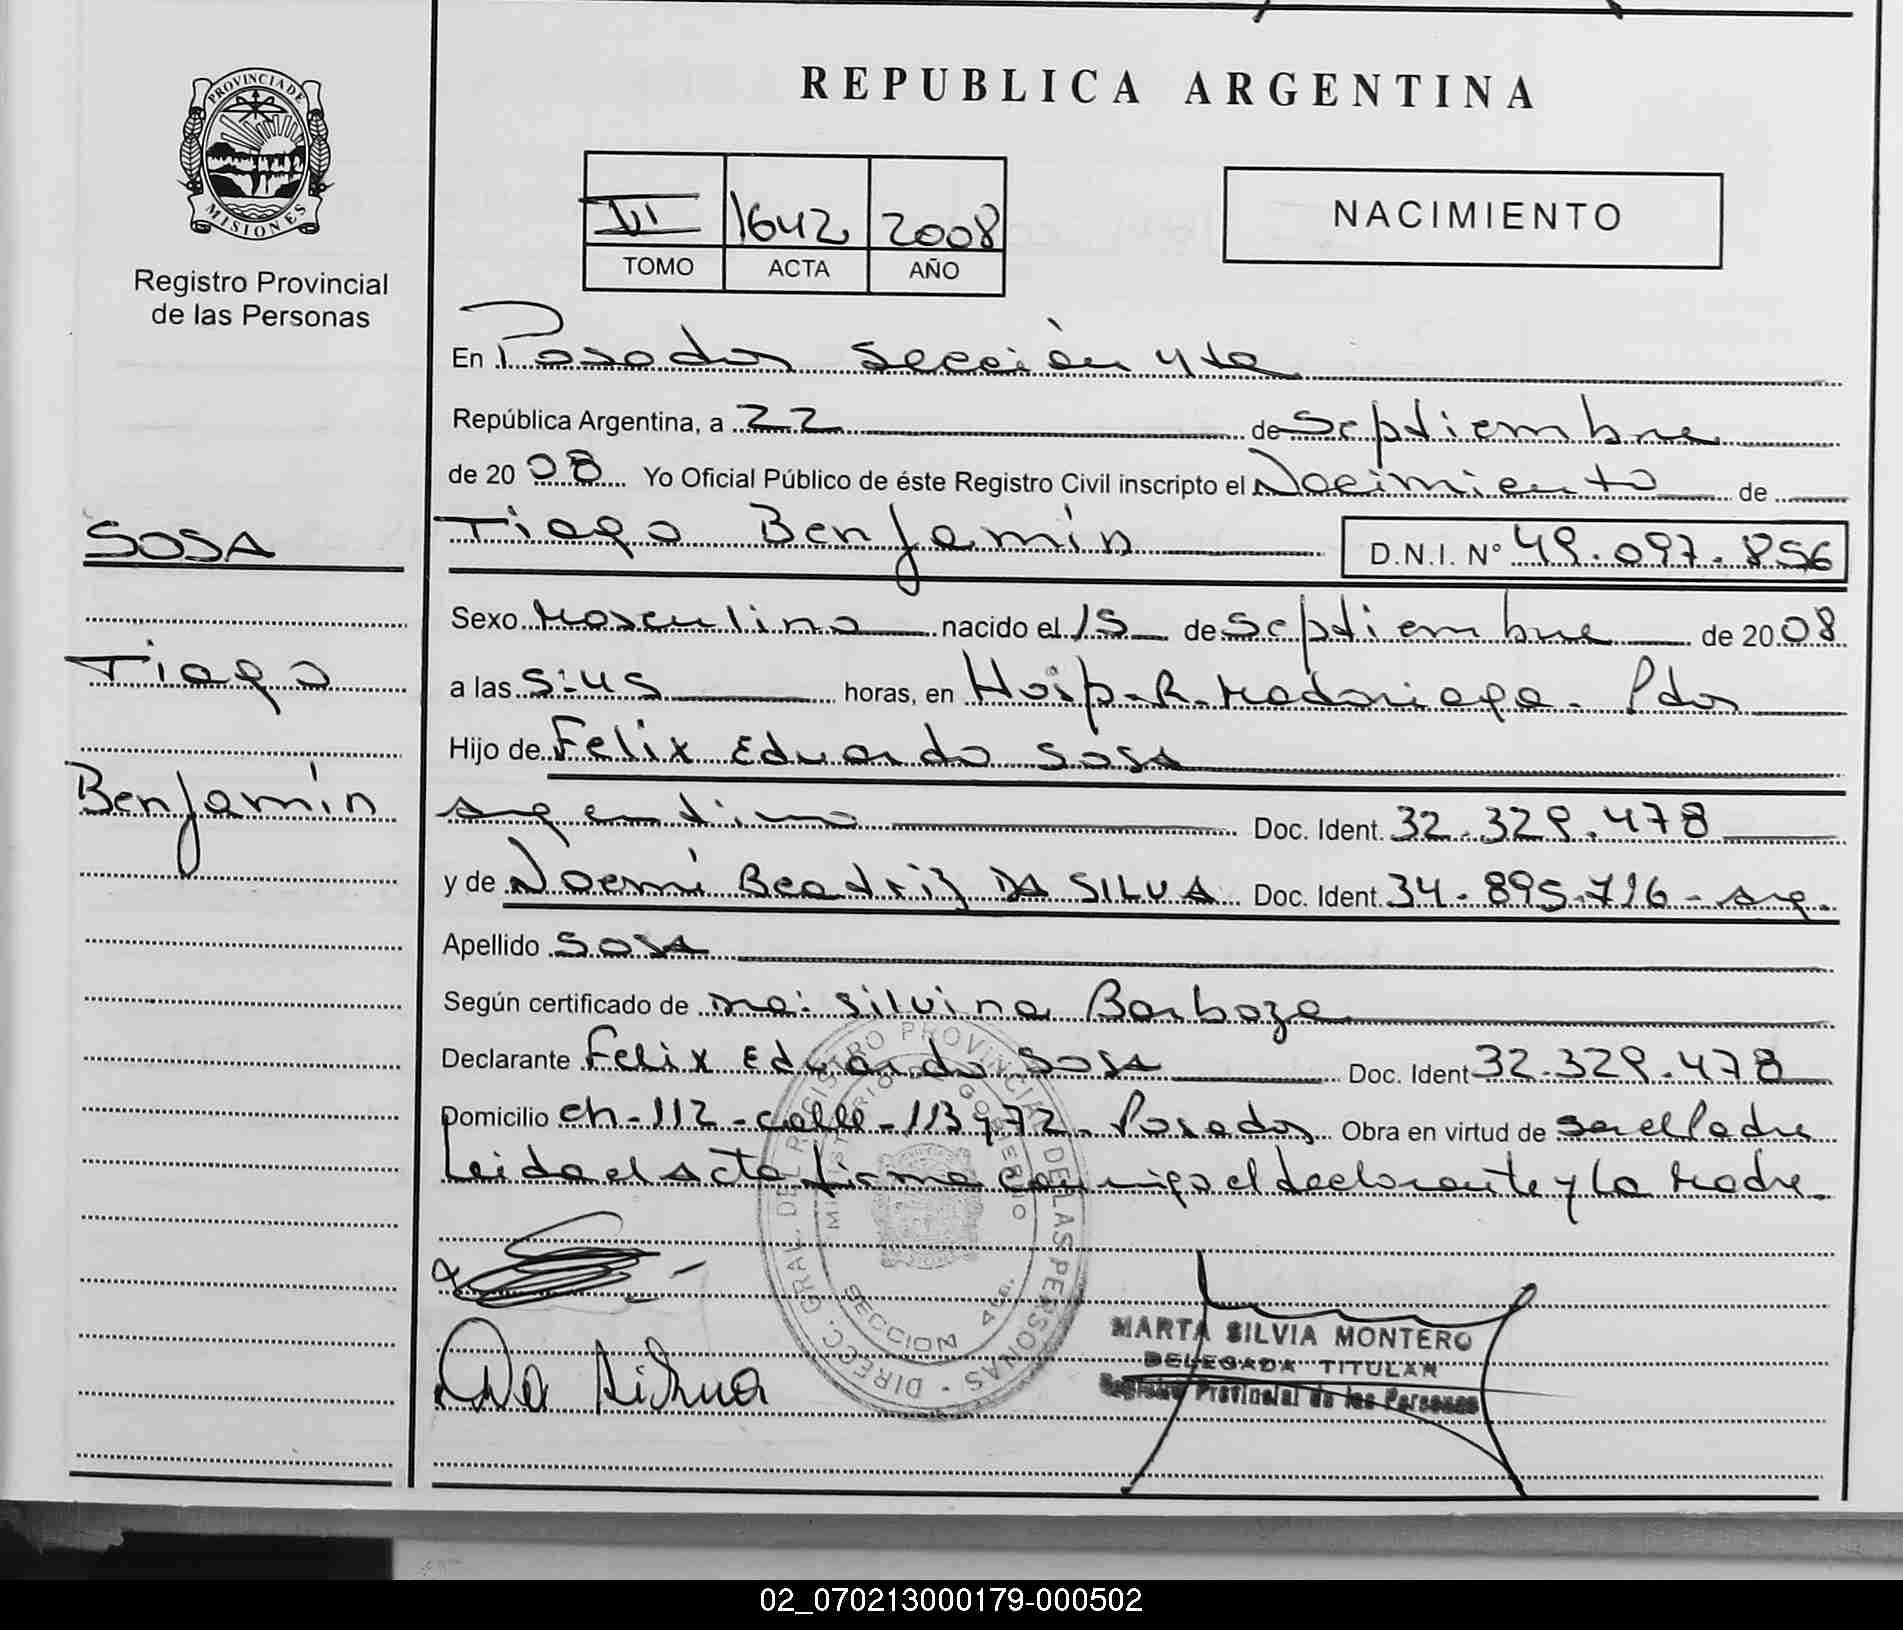 PROVINCIA DE
MISIONES
Registro Provincial
de las Personas
SOSA
Tiago
Benjamín
REPUBLICA ARGENTINA
III 1642 2008
TOMO ACTA AÑO
NACIMIENTO
En Posadas Sección 4ta
República Argentina, a 22 de Septiembre
de 2008 Yo Oficial Público de éste Registro Civil inscripto el Nacimiento de
Tiago Benjamín D.N.I. N° 49.097.856
Sexo Masculino nacido el 15 de Septiembre de 2008
a las 5:45 horas, en Hosp. R. Madariaga. Pdas
Hijo de Felix Eduardo SOSA
argentino Doc. Ident. 32.329.478
y de Noemí Beatriz DA SILVA Doc. Ident. 34.895.716 - arg.
Apellido SOSA
Según certificado de Silvina Barboza
Declarante Felix Eduardo SOSA Doc. Ident 32.329.478
Domicilio ch-112-calle-113 y 72-Posadas Obra en virtud de ser el Padre
Leida el acta firma conmigo el declarante y la Madre.
DIRECC. GRAL. DEL REGISTRO PROVINCIAL DE LAS PERSONAS
MINISTERIO DE GOBIERNO
SECCION 4ta.
Da Silva
MARTA SILVIA MONTERO
DELEGADA TITULAR
Registro Provincial de las Personas
02_070213000179-000502